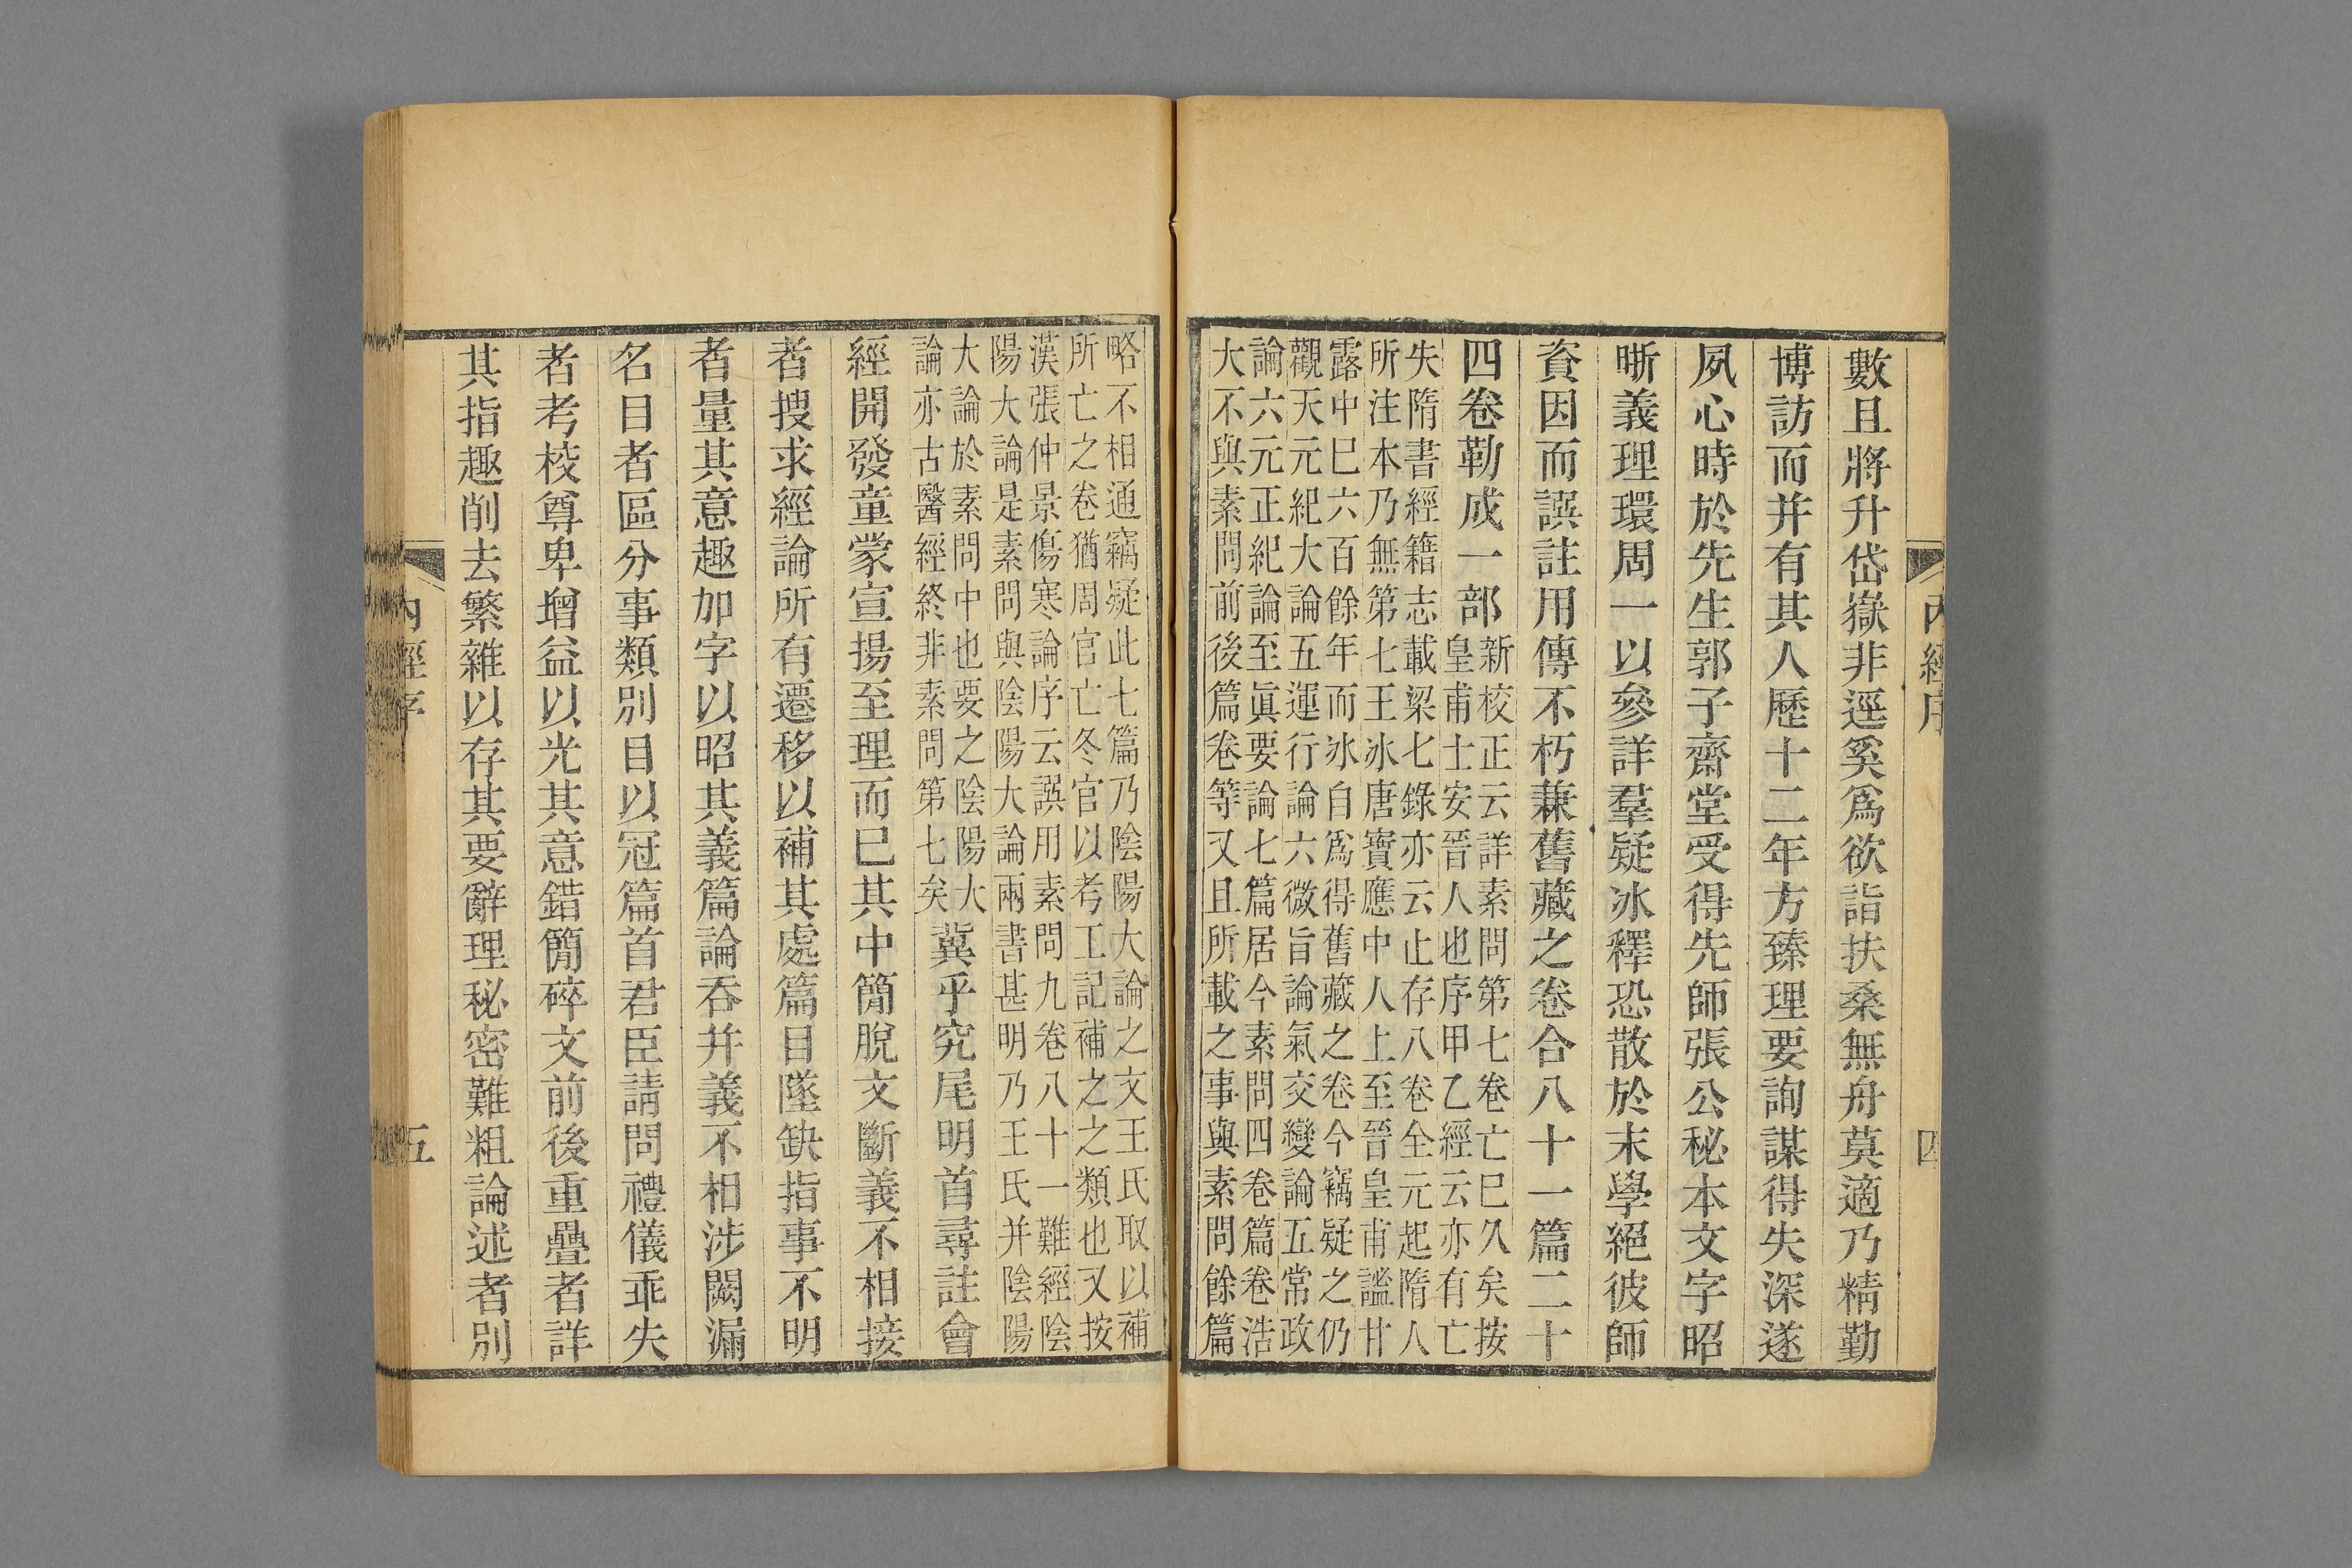 內經序
四
數且將升岱嶽非逕奚爲欲詣扶桑無舟莫適乃精勤
博訪而并有其人歷十二年方臻理要詢謀得失深遂
夙心時於先生郭子齋堂受得先師張公秘本文字昭
晣義理環周一以參詳羣疑冰釋恐散於末學絕彼師
資因而譔註用傳不朽兼舊藏之卷合八十一篇二十
四卷勒成一部
新校正云詳素問第七卷亡巳久矣按
皇甫士安晉人也序甲乙經云亦有亡
失隋書經籍志載梁七錄亦云止存八卷全元起隋人
所注本乃無第七王冰唐寶應中人上至晉皇甫謐甘
露中巳六百餘年而冰自爲得舊藏之卷今竊疑之仍
觀天元紀大論五運行論六微旨論氣交變論五常政
論六元正紀論至眞要論七篇居今素問四卷篇卷浩
大不與素問前後篇卷等又且所載之事與素問餘篇
略不相通竊疑此七篇乃陰陽大論之文王氏取以補
所亡之卷猶周官亡冬官以考工記補之之類也又按
漢張仲景傷寒論序云譔用素問九卷八十一難經陰
陽大論是素問與陰陽大論兩書甚明乃王氏并陰陽
大論於素問中也要之陰陽大
論亦古醫經終非素問第七矣
冀乎究尾明首尋註會
經開發童蒙宣揚至理而巳其中簡脫文斷義不相接
者搜求經論所有遷移以補其處篇目墜缺指事不明
者量其意趣加字以昭其義篇論吞并義不相涉闕漏
名目者區分事類別目以冠篇首君臣請問禮儀乖失
者考校尊卑增益以光其意錯簡碎文前後重疊者詳
其指趣削去繁雜以存其要辭理秘密難粗論述者別
內經序
五